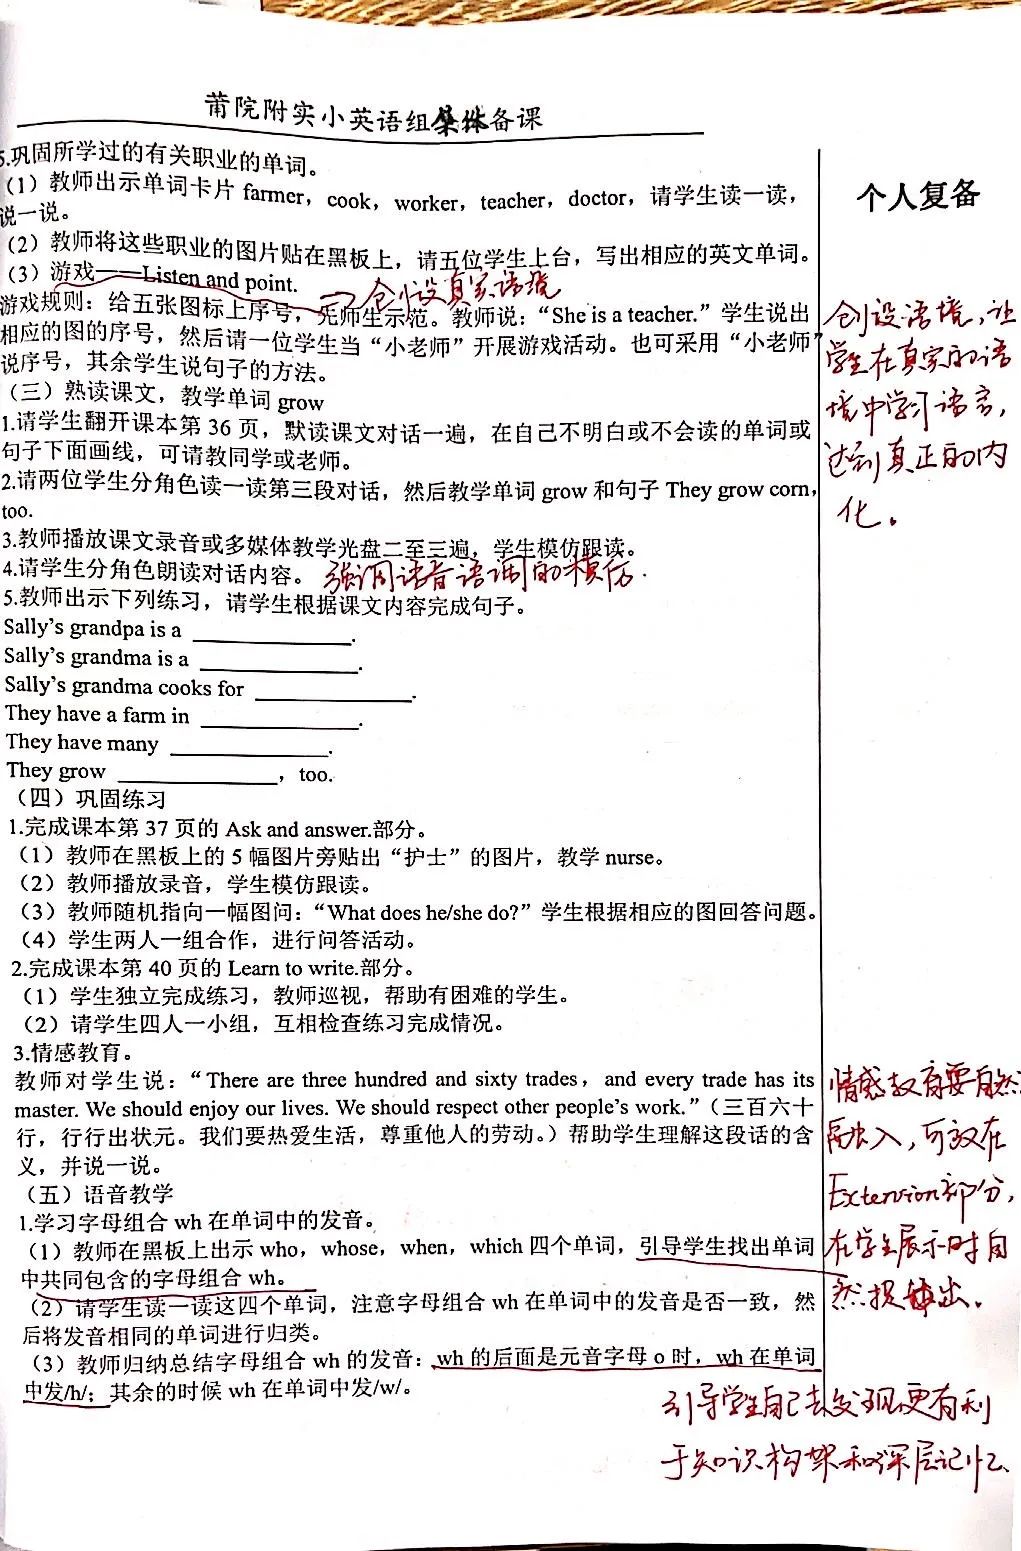 莆院附实小英语组集体备课
个人复备
5.巩固所学过的有关职业的单词。
（1）教师出示单词卡片 farmer，cook，worker，teacher，doctor，请学生读一读，
说一说。
（2）教师将这些职业的图片贴在黑板上，请五位学生上台，写出相应的英文单词。
（3）游戏——Listen and point.
创设真实语境
游戏规则：给五张图标上序号，先师生示范。教师说：“She is a teacher.”学生说出
相应的图的序号，然后请一位学生当“小老师”开展游戏活动。也可采用“小老师”
说序号，其余学生说句子的方法。
创设语境，让
学生在真实的语
境中学习语言，
达到真正的内
化。
（三）熟读课文，教学单词 grow
1.请学生翻开课本第 36 页，默读课文对话一遍，在自己不明白或不会读的单词或
句子下面画线，可请教同学或老师。
2.请两位学生分角色读一读第三段对话，然后教学单词 grow 和句子 They grow corn,
too.
3.教师播放课文录音或多媒体教学光盘二至三遍，学生模仿跟读。
4.请学生分角色朗读对话内容。 强调语音语调的模仿.
5.教师出示下列练习，请学生根据课文内容完成句子。
Sally’s grandpa is a ______________.
Sally’s grandma is a ______________.
Sally’s grandma cooks for ______________.
They have a farm in ______________.
They have many ______________.
They grow ______________，too.
（四）巩固练习
1.完成课本第 37 页的 Ask and answer.部分。
（1）教师在黑板上的 5 幅图片旁贴出“护士”的图片，教学 nurse。
（2）教师播放录音，学生模仿跟读。
（3）教师随机指向一幅图问：“What does he/she do?”学生根据相应的图回答问题。
（4）学生两人一组合作，进行问答活动。
2.完成课本第 40 页的 Learn to write.部分。
（1）学生独立完成练习，教师巡视，帮助有困难的学生。
（2）请学生四人一小组，互相检查练习完成情况。
3.情感教育。
教师对学生说：“There are three hundred and sixty trades，and every trade has its
master. We should enjoy our lives. We should respect other people’s work.”（三百六十
行，行行出状元。我们要热爱生活，尊重他人的劳动。）帮助学生理解这段话的含
义，并说一说。
情感教育要自然
融入，可放在
Extension部分，
在学生展示时自
然提出。
（五）语音教学
1.学习字母组合 wh 在单词中的发音。
（1）教师在黑板上出示 who，whose，when，which 四个单词，引导学生找出单词
中共同包含的字母组合 wh。
（2）请学生读一读这四个单词，注意字母组合 wh 在单词中的发音是否一致，然
后将发音相同的单词进行归类。
（3）教师归纳总结字母组合 wh 的发音：wh 的后面是元音字母 o 时，wh 在单词
中发/h/；其余的时候 wh 在单词中发/w/。
引导学生自己去发现更有利
于知识构架和深层记忆